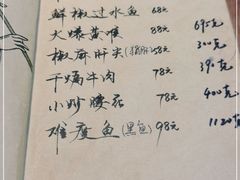 鲜椒过水鱼 68元
火爆黄喉 88元 695克
椒麻肝尖(猪肝) 58元 300克
干煸牛肉 78元 390克
小炒腰花 78元 400克
难度鱼(黑鱼) 98元 1120克